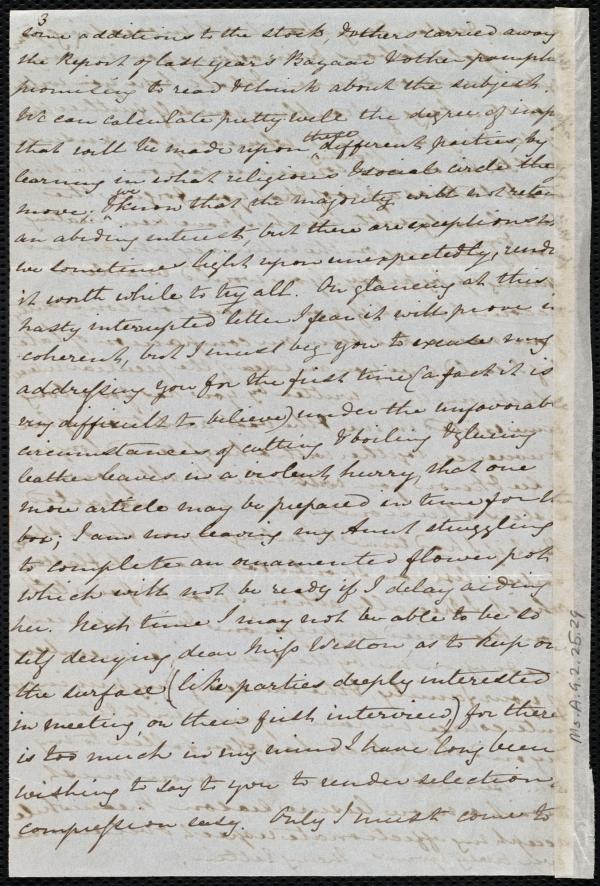 3
some additions to the stock, & others carried away
the Report of last year's Bazaar & other pamph
promising to read & think about the subject.
We can calculate pretty well the degree of imp
that will be made upon these different parties, by
learning in what religious & social circle they
move; & we know that the majority will not retain
an abiding interest, but there are exceptions to
we sometimes light upon unexpectedly, rende
it worth while to try all. On glancing at this
hasty interrupted letter I fear it will prove in
coherent, but I must beg you to excuse my
addressing you for the first time (a fact it is
very difficult to believe) under the unfavorable
circumstances of cutting & boiling & glueing
leather leaves in a violent hurry, that one
more article may be prepared in time for th
box; I am now leaving my Aunt struggling
to complete an ornamented flower pot
which will not be ready if I delay aiding
her. Next time I may not be able to be so
self denying dear Miss Weston as to keep on
the surface (like parties deeply interested
in meeting, on their first interview) for there
is too much in my mind I have long been
wishing to say to you to render selection,
compression easy. Only I must come to
Ms.A.9.2.25.29